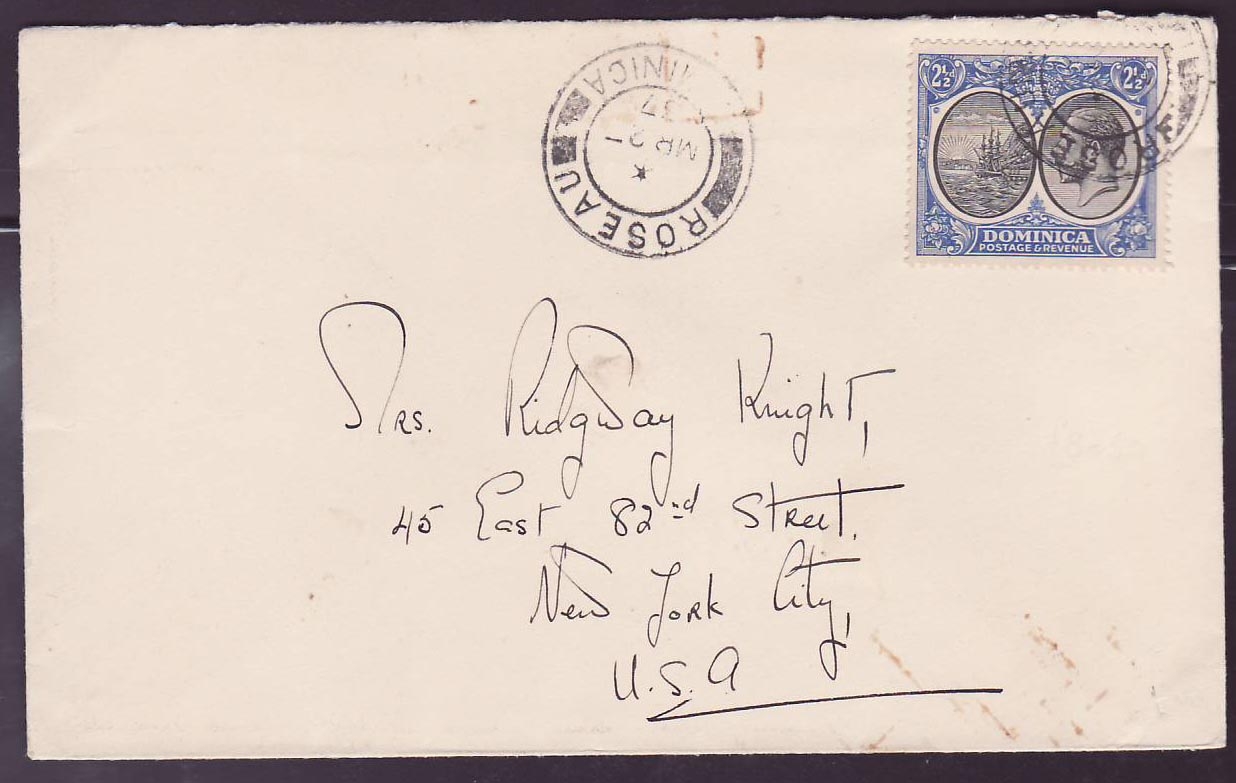 ROSEAU
MINICA
MR 27
37
2½d 2½d
DOMINICA
POSTAGE & REVENUE
Mrs. Ridgway Knight,
45 East 82nd Street.
New York City,
U.S.A